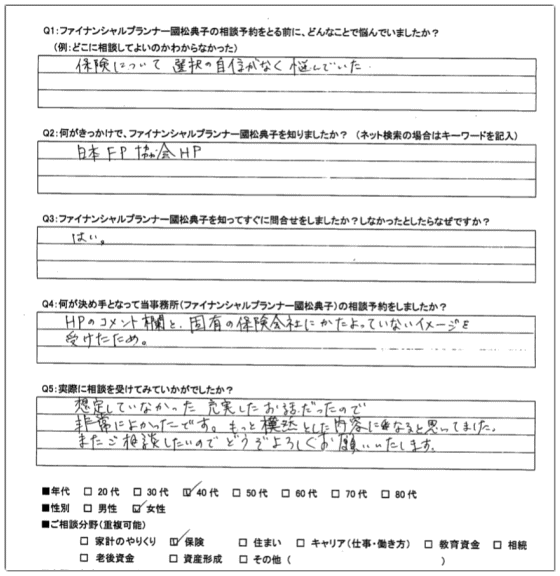 Q1:ファイナンシャルプランナー國松典子の相談予約をとる前に、どんなことで悩んでいましたか?
(例:どこに相談してよいのかわからなかった)
保険について 選択の自信がなく悩んでいた.
Q2:何がきっかけで、ファイナンシャルプランナー國松典子を知りましたか? (ネット検索の場合はキーワードを記入)
日本FP協会HP
Q3:ファイナンシャルプランナー國松典子を知ってすぐに問合せをしましたか?しなかったとしたらなぜですか?
はい。
Q4:何が決め手となって当事務所(ファイナンシャルプランナー國松典子)の相談予約をしましたか?
HPのコメント欄と、固有の保険会社にかたよっていないイメージを
受けたため。
Q5:実際に相談を受けてみていかがでしたか?
想定していなかった 充実したお話だったので
非常によかったです。もっと模然とした内容になると思ってました。
またご相談したいので どうぞよろしくお願いいたします。
■年代 □ 20代 □ 30代 ☑ 40代 □ 50代 □ 60代 □ 70代 □ 80代
■性別 □ 男性 ☑ 女性
■ご相談分野(重複可能)
□ 家計のやりくり ☑ 保険 □ 住まい □ キャリア(仕事・働き方) □ 教育資金 □ 相続
□ 老後資金 □ 資産形成 □ その他 ( )